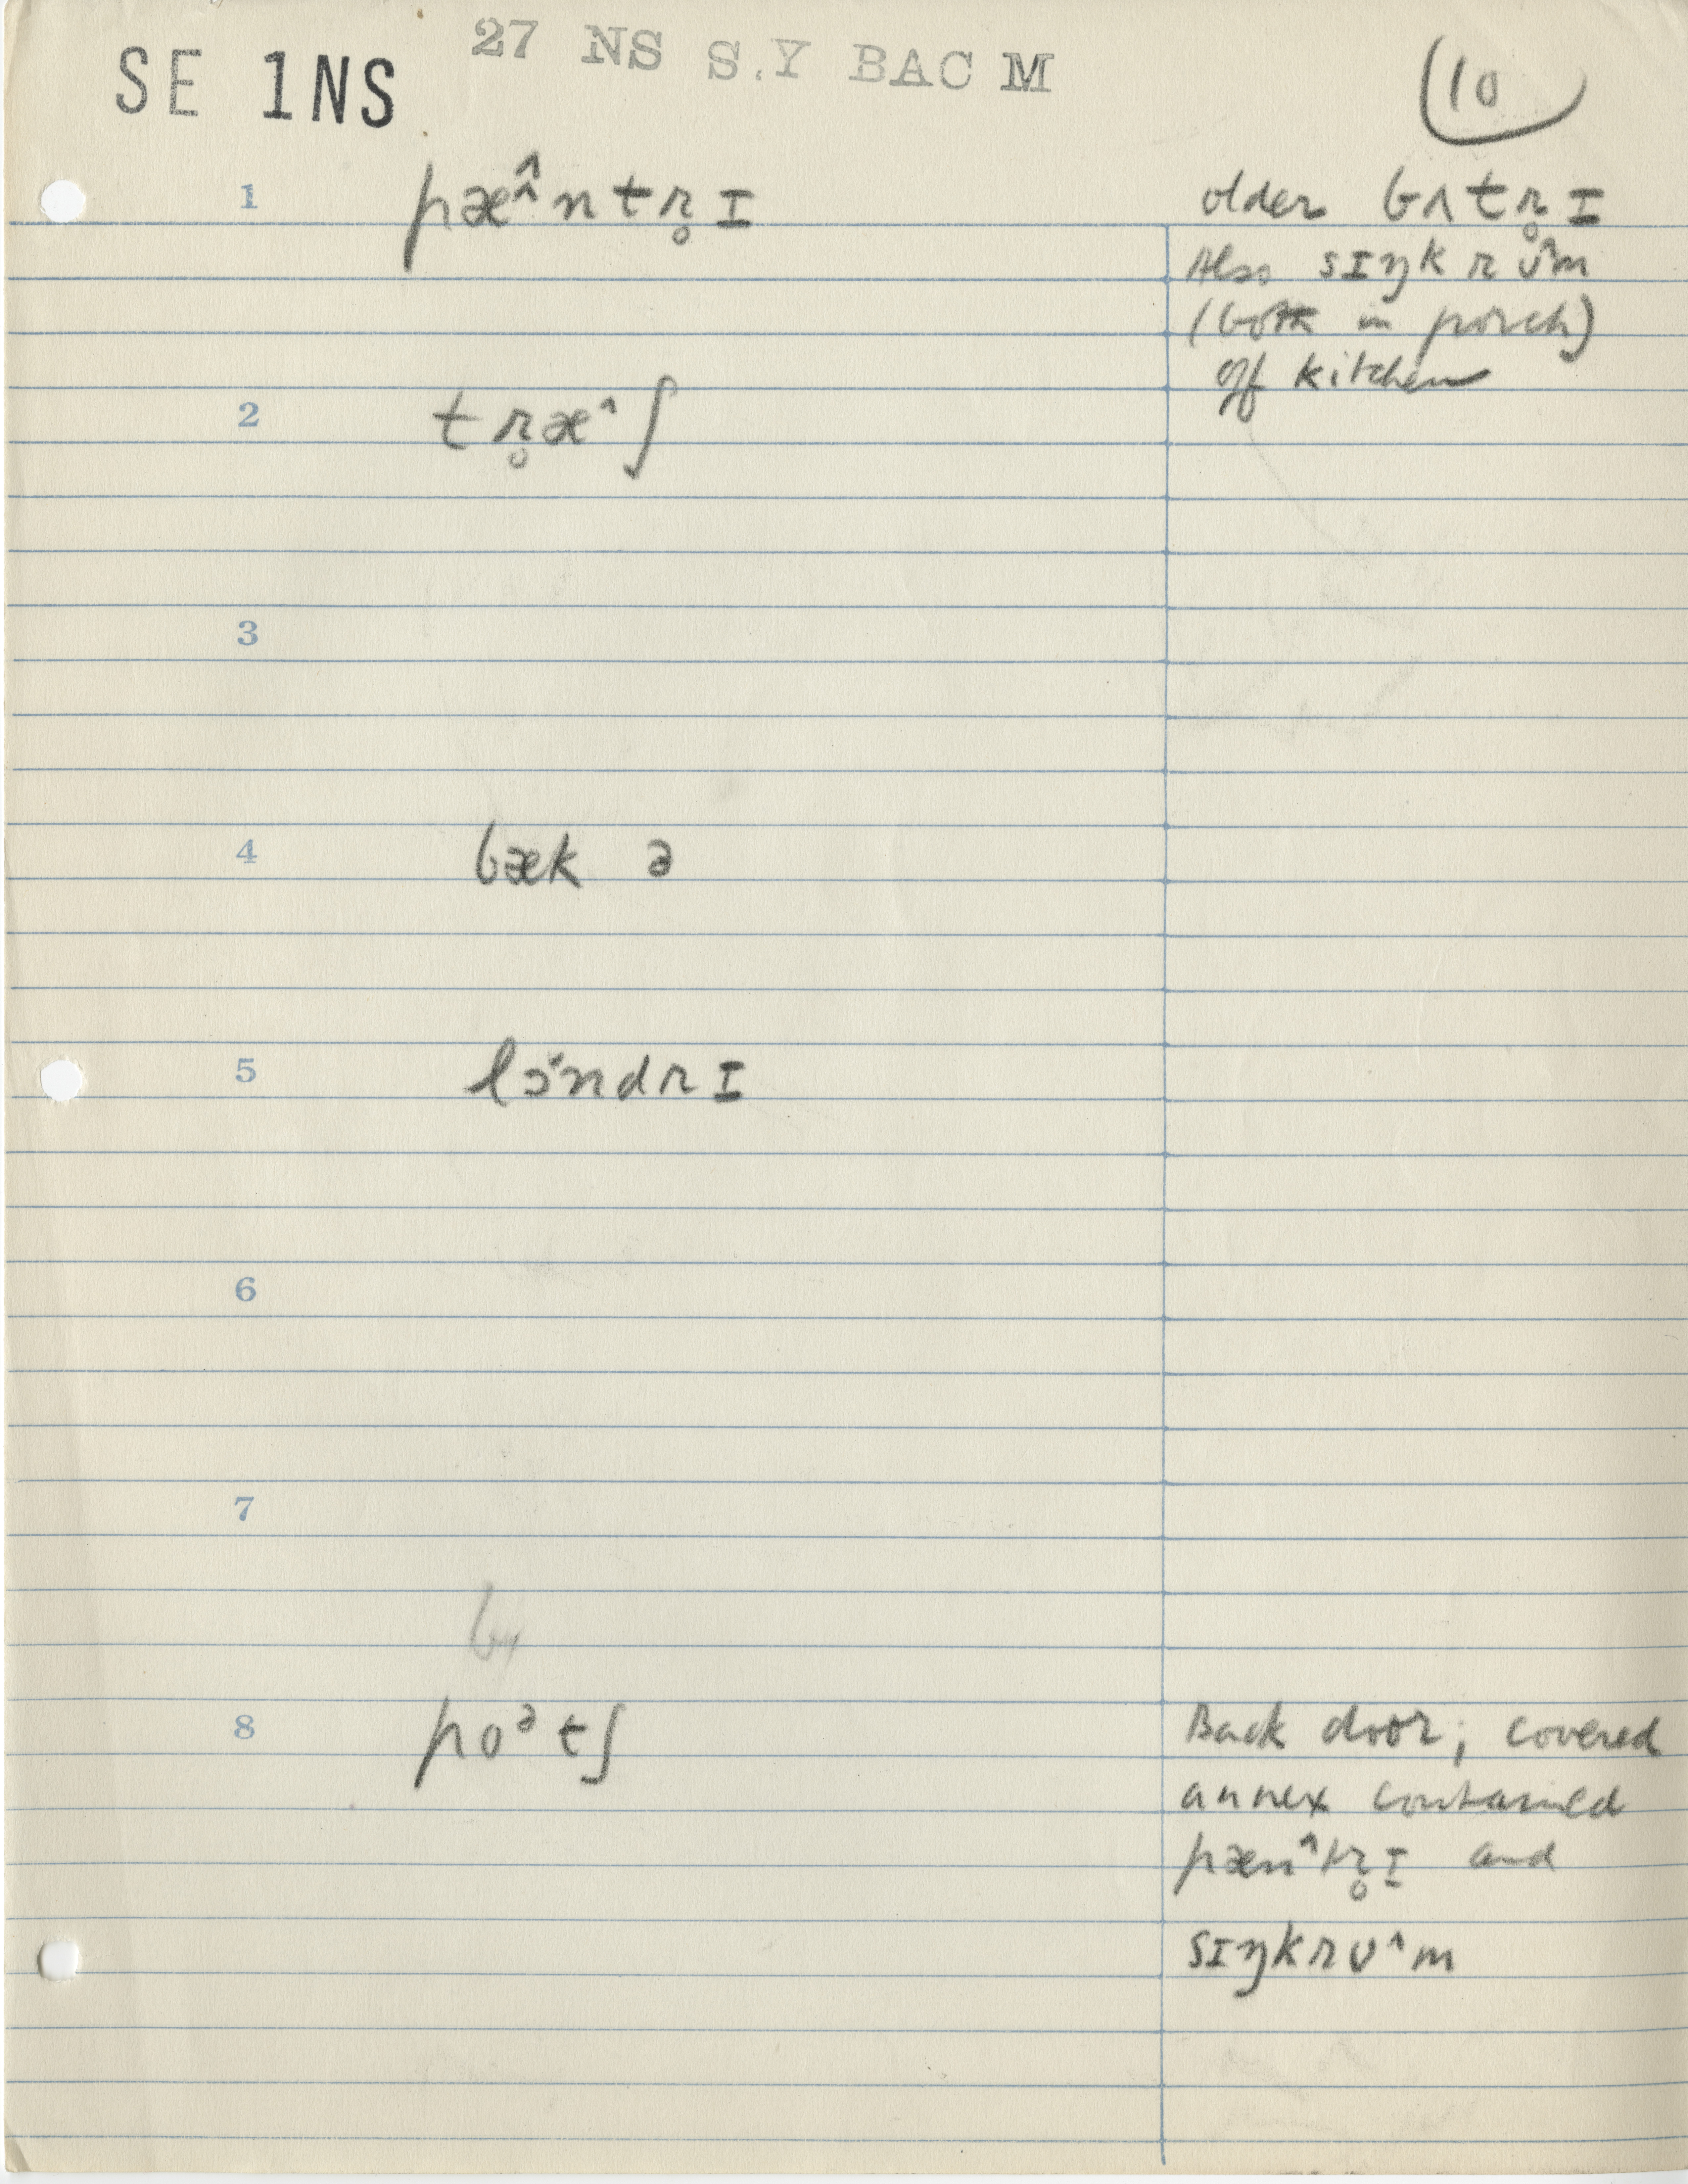 SE 1NS 27 NS S.Y BAC M 10
1 pæ^^ntr̥ɪ older bʌtr̥ɪ
Also sɪŋk rʊ^m
(both in porch)
off kitchen
2 tr̥æ^ʃ
3
4 bæk ə
5 lɔ˅ndrɪ
6
7
8 poᵊtʃ Back door; covered
annex contained
pæn^tr̥ɪ and
sɪŋkrʊ^m